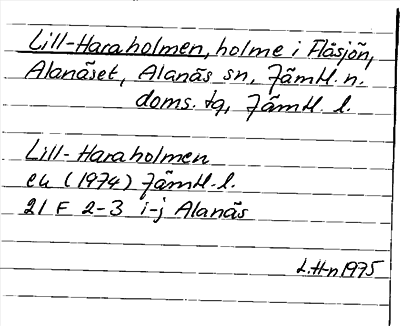 Lill-Haraholmen, holme i Flåsjön,
Alanäset, Alanäs sn, Jämtl. n.
doms. tg, Jämtl. l.
Lill-Haraholmen
ek (1974) Jämtl. l.
21 F 2-3 i-j Alanäs
L.H-n 1975